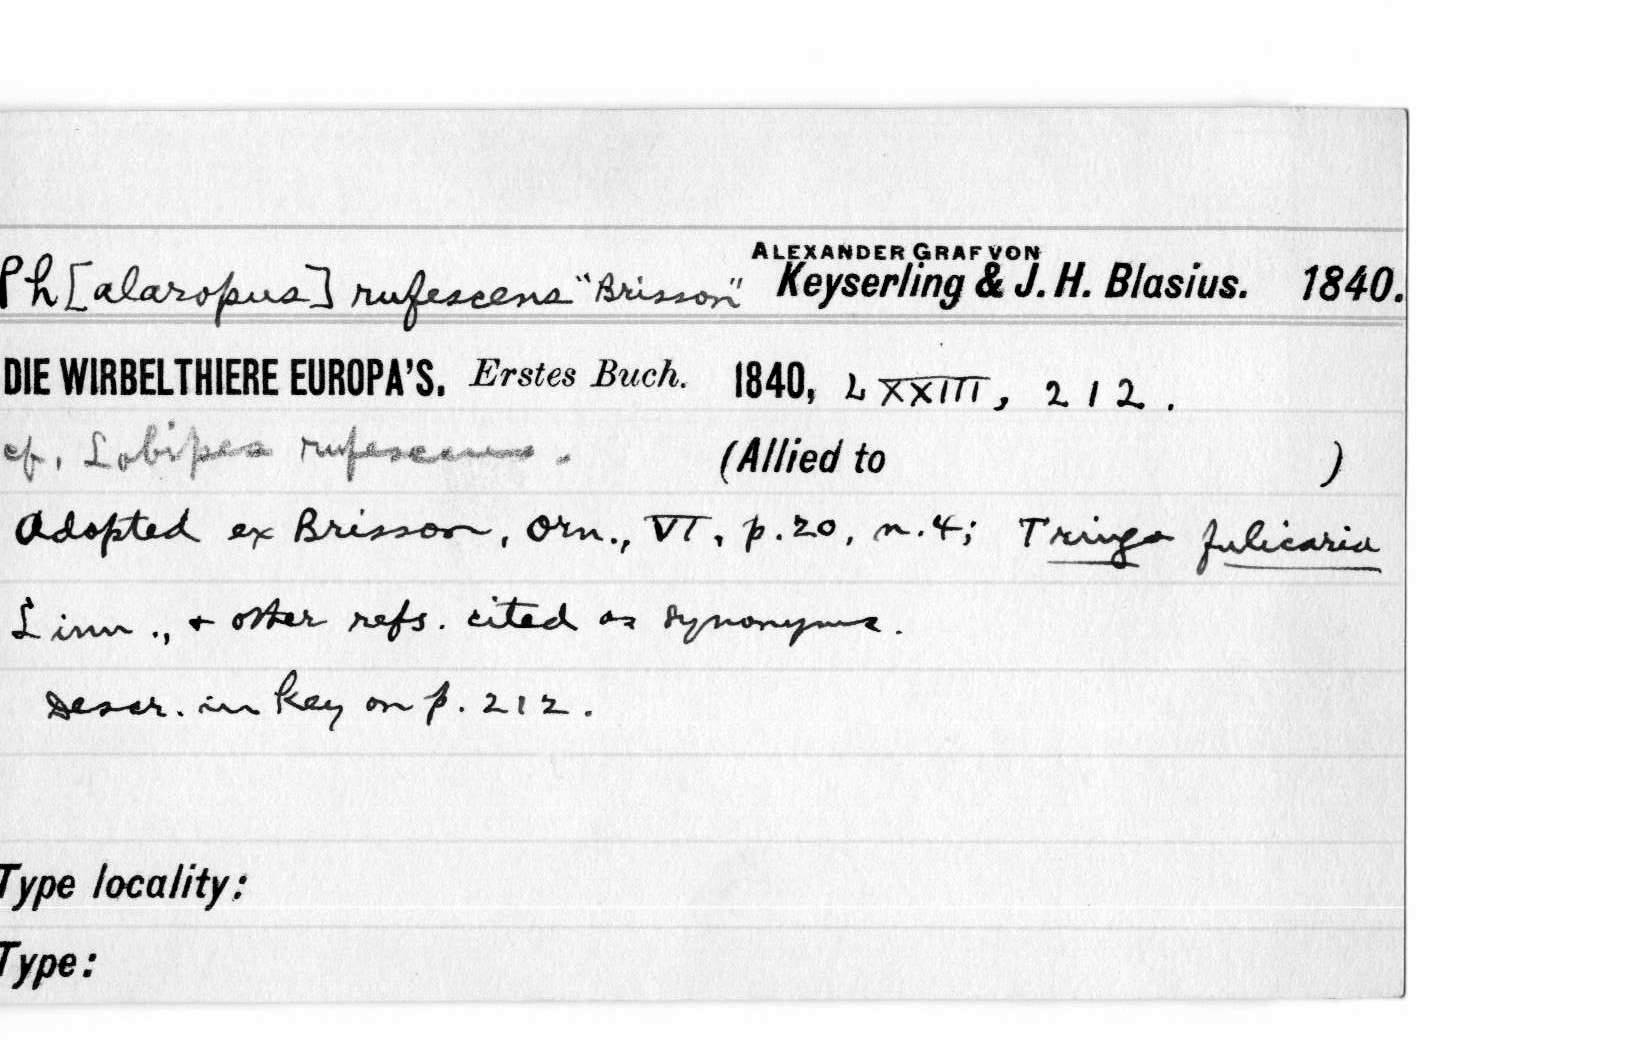 Ph[alaropus] rufescens "Brisson" ALEXANDER GRAF VON Keyserling & J. H. Blasius. 1840.
DIE WIRBELTHIERE EUROPA'S. Erstes Buch. 1840, LXXIII, 212.
cf. Lobipes rufescens. (Allied to )
Adopted ex Brisson, Orn., VI, p. 20, n. 4; Tringa fulicaria
Linn., + other refs. cited as synonyms.
Descr. in key on p. 212.
Type locality:
Type: